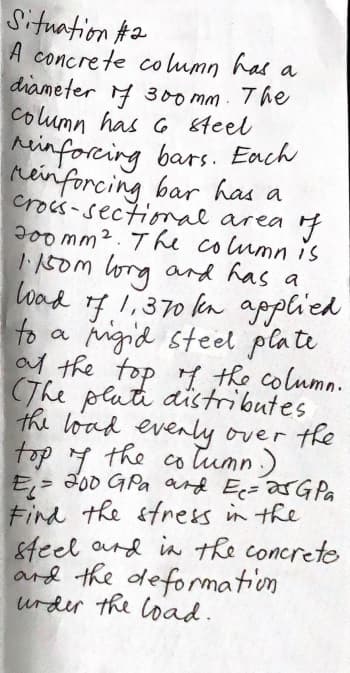 Situation #2
A concrete column has a
diameter of 300 mm. The
column has 6 steel
reinforcing bars. Each
reinforcing bar has a
cross-sectional area of
200 mm². The column is
1.150m long and has a
load of 1,370 kn applied
to a rigid steel plate
at the top of the column.
(The plate distributes
the load evenly over the
top of the column.)
Eₛ = 200 GPa and Ec= 25 GPa
Find the stress in the
steel and in the concrete
and the deformation
under the load.